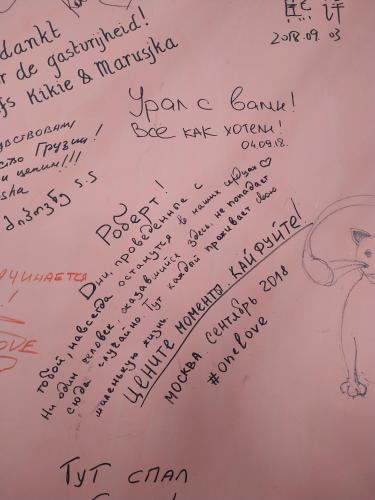 dankt
r de gastvrijheid!
fs Kikie & Marusjka
熊 评
2018.09.03
Урал с вами!
Все как хотели!
04.09.18.
увствовали
ство Грузии!
и ценим!!!
sha
S.S
Роберт!
Дни, проведенные с
тобой, навсегда останутся в наших сердцах ♡
Ни один человек, оказавшийся здесь, не попадает
сюда случайно. Тут каждый проживает свою
маленькую жизнь
ЦЕНИТЕ МОМЕНТЫ. КАЙФУЙТЕ!
МОСКВА СЕНТЯБРЬ 2018
#onelove
ЧИНАЕТСЯ
!
OVE
ТУТ СПАЛ